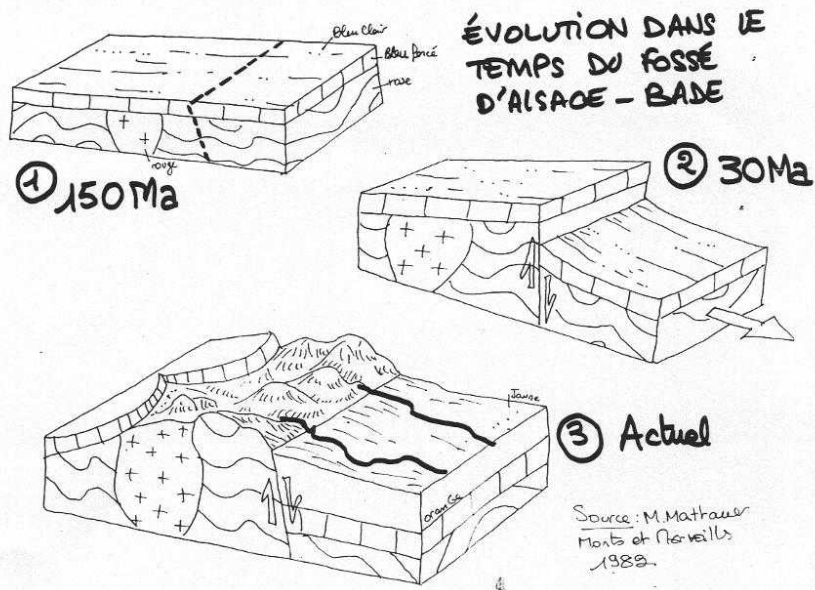 ÉVOLUTION DANS LE
TEMPS DU FOSSÉ
D'ALSACE - BADE
Bleu clair
Bleu foncé
rose
rouge
① 150 Ma
② 30 Ma
Jaune
orange
③ Actuel
Source : M. Mattauer
Monts et Merveilles
1989